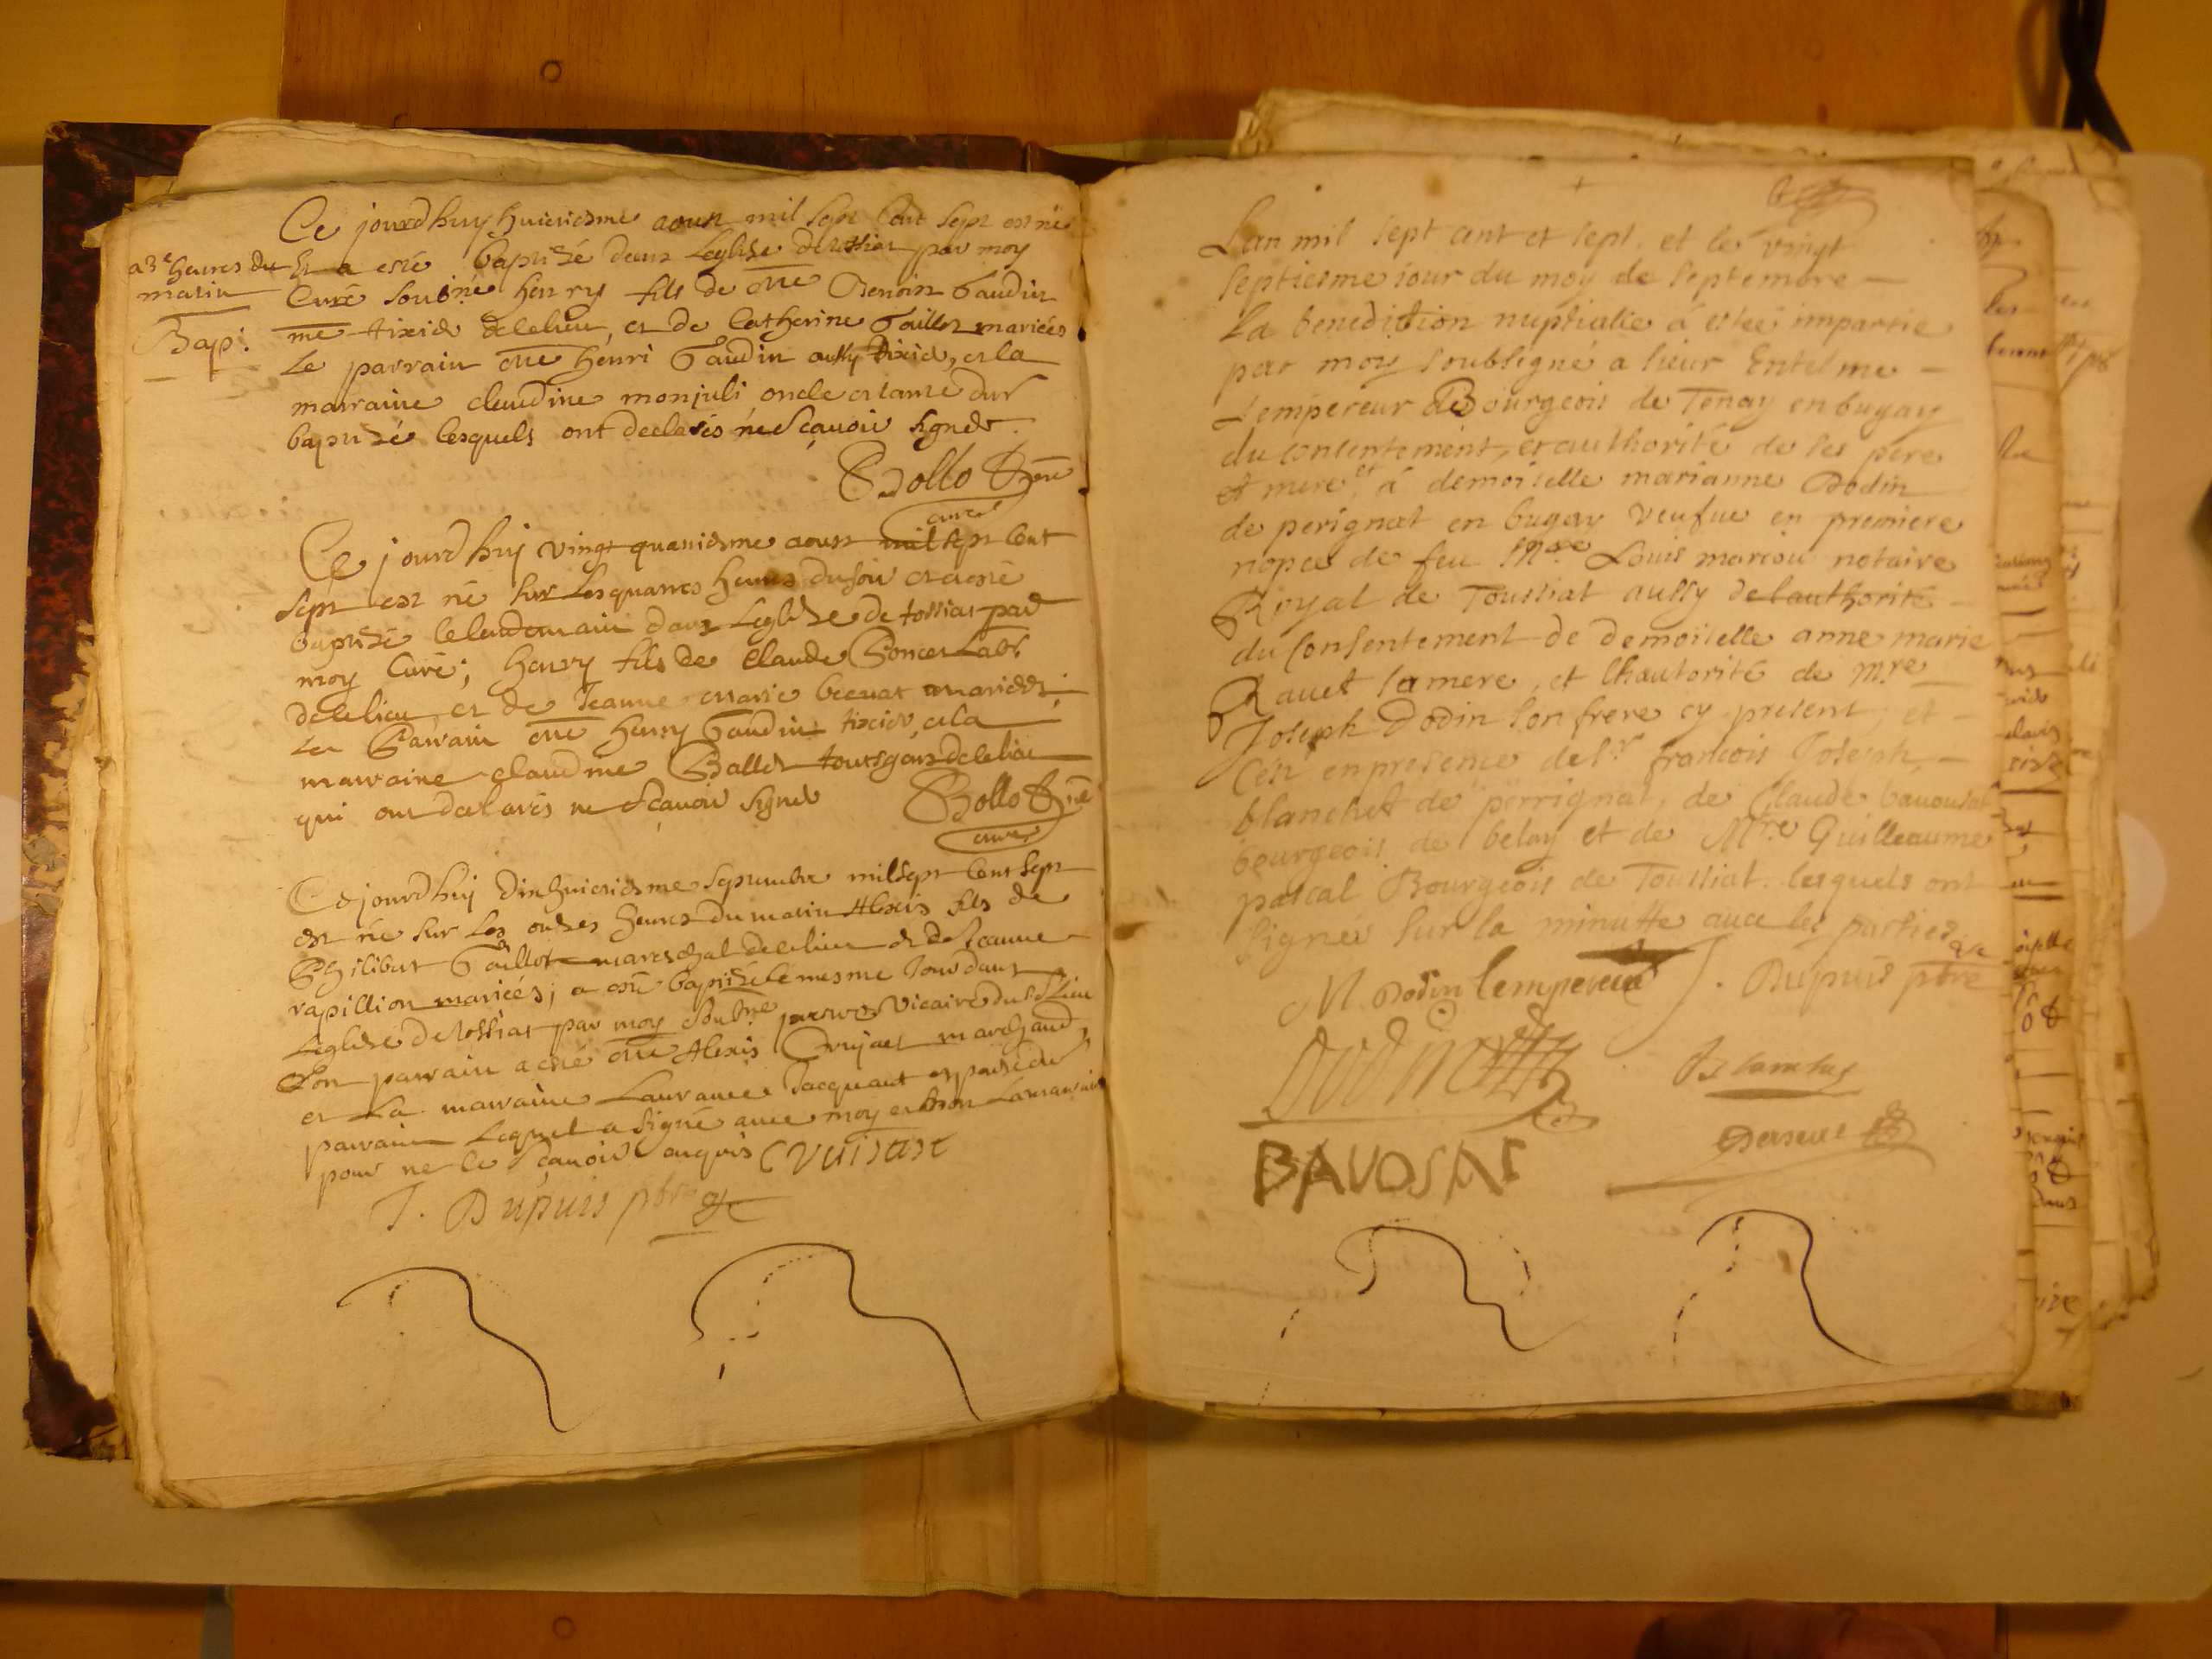 Ce jourdhuy huictiesme aoust mil sept cent sept est né
a 3e heures du
matin
Bap:
et a esté baptizé dans Leglize de tossiat par moy
Curé soubné henry fils de me Benoist Gaudin
me tixier de ce lieu, et de Catherine Gaillot mariées
Le parrain me henri Gaudin aussy tixier, et la
marraine claudine monjuli oncle et tante dud
baptizé lesquels ont declarés ne scavoir signer.
Bollo
curé
Ce jourdhuy vingt quatriesme aoust mil sept cent
sept est né sur les quatres heures du soir et a esté
baptizé le lendemain dans Leglize de tossiat par
moy Curé; henry fils de Claude Poncet Labr
de ce lieu et de Jeanne marie mariées
Le Parrain me henry Gaudin tixier, et la
marraine claudine Ballet tous gens de ce lieu
qui ont declarés ne scavoir signer
Bollo
curé
Ce jourdhuy dixhuictiesme septembre mil sept cent sept
est né sur les onzes heures du matin Alexis fils de
Philibert Gaillot mareschal de ce lieu et de Jeanne
rapillion mariées; a esté baptizé le mesme Jour dans
Leglize de tossiat par moy soubné Vicaire dud Lieu
son parrain a esté me Alexis Cruisat marchand,
et La marraine Laurance Jacquant
parrain Lequel a signé avec moy et non La marraine
pour ne le scavoir enquis Cruisat
J. Dupuis ptre
Lan mil sept cent et sept, et le vingt
septiesme iour du moy de septembre
La benediction nuptialle á estée impartie
par moy soubsigné a sieur Entelme
Lempereur Bourgeois de Tenay en bugay
du consentement, et authorité de ses pere
et mere, et á demoiselle marianne Dodin
de perignat en bugay veufue en premiere
nopces de feu Mre Louis mariou notaire
Royal de Toussiat aussy de lauthorité
du Consentement de demoiselle anne marie
Ravet sa mere, et lhautorité de Mre
Joseph Dodin son frere cy present, et
Cest en presence de Sr francois Joseph,
blanchet de perrignat, de Claude bavousat
bourgeois de belay et de Mre Guilleaume
pascal Bourgeois de Toussiat. lesquels ont
signés sur la minutte avec les parties
M. Dodin lempereur J. Dupuis ptre
Dodin
BAVOSAT